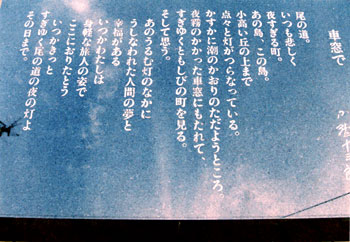 車窓で
尾の道。
いつも悲しく
夜すぎる町。
あの島、この島。
小高い丘の上まで
点々と灯がつらなっている。
かすかに潮のかおりのただようところ。
夜霧のかかった車窓にもたれて、
すぎゆくともしびの町を見る。
そして思う。
あのうるむ灯のなかに
うしなわれた人間の夢と
幸福がある
いつかわたしは
身軽な旅人の姿で
ここにおりたとう
いつかきっと
すぎゆく尾の道の夜の灯よ
その日まで。